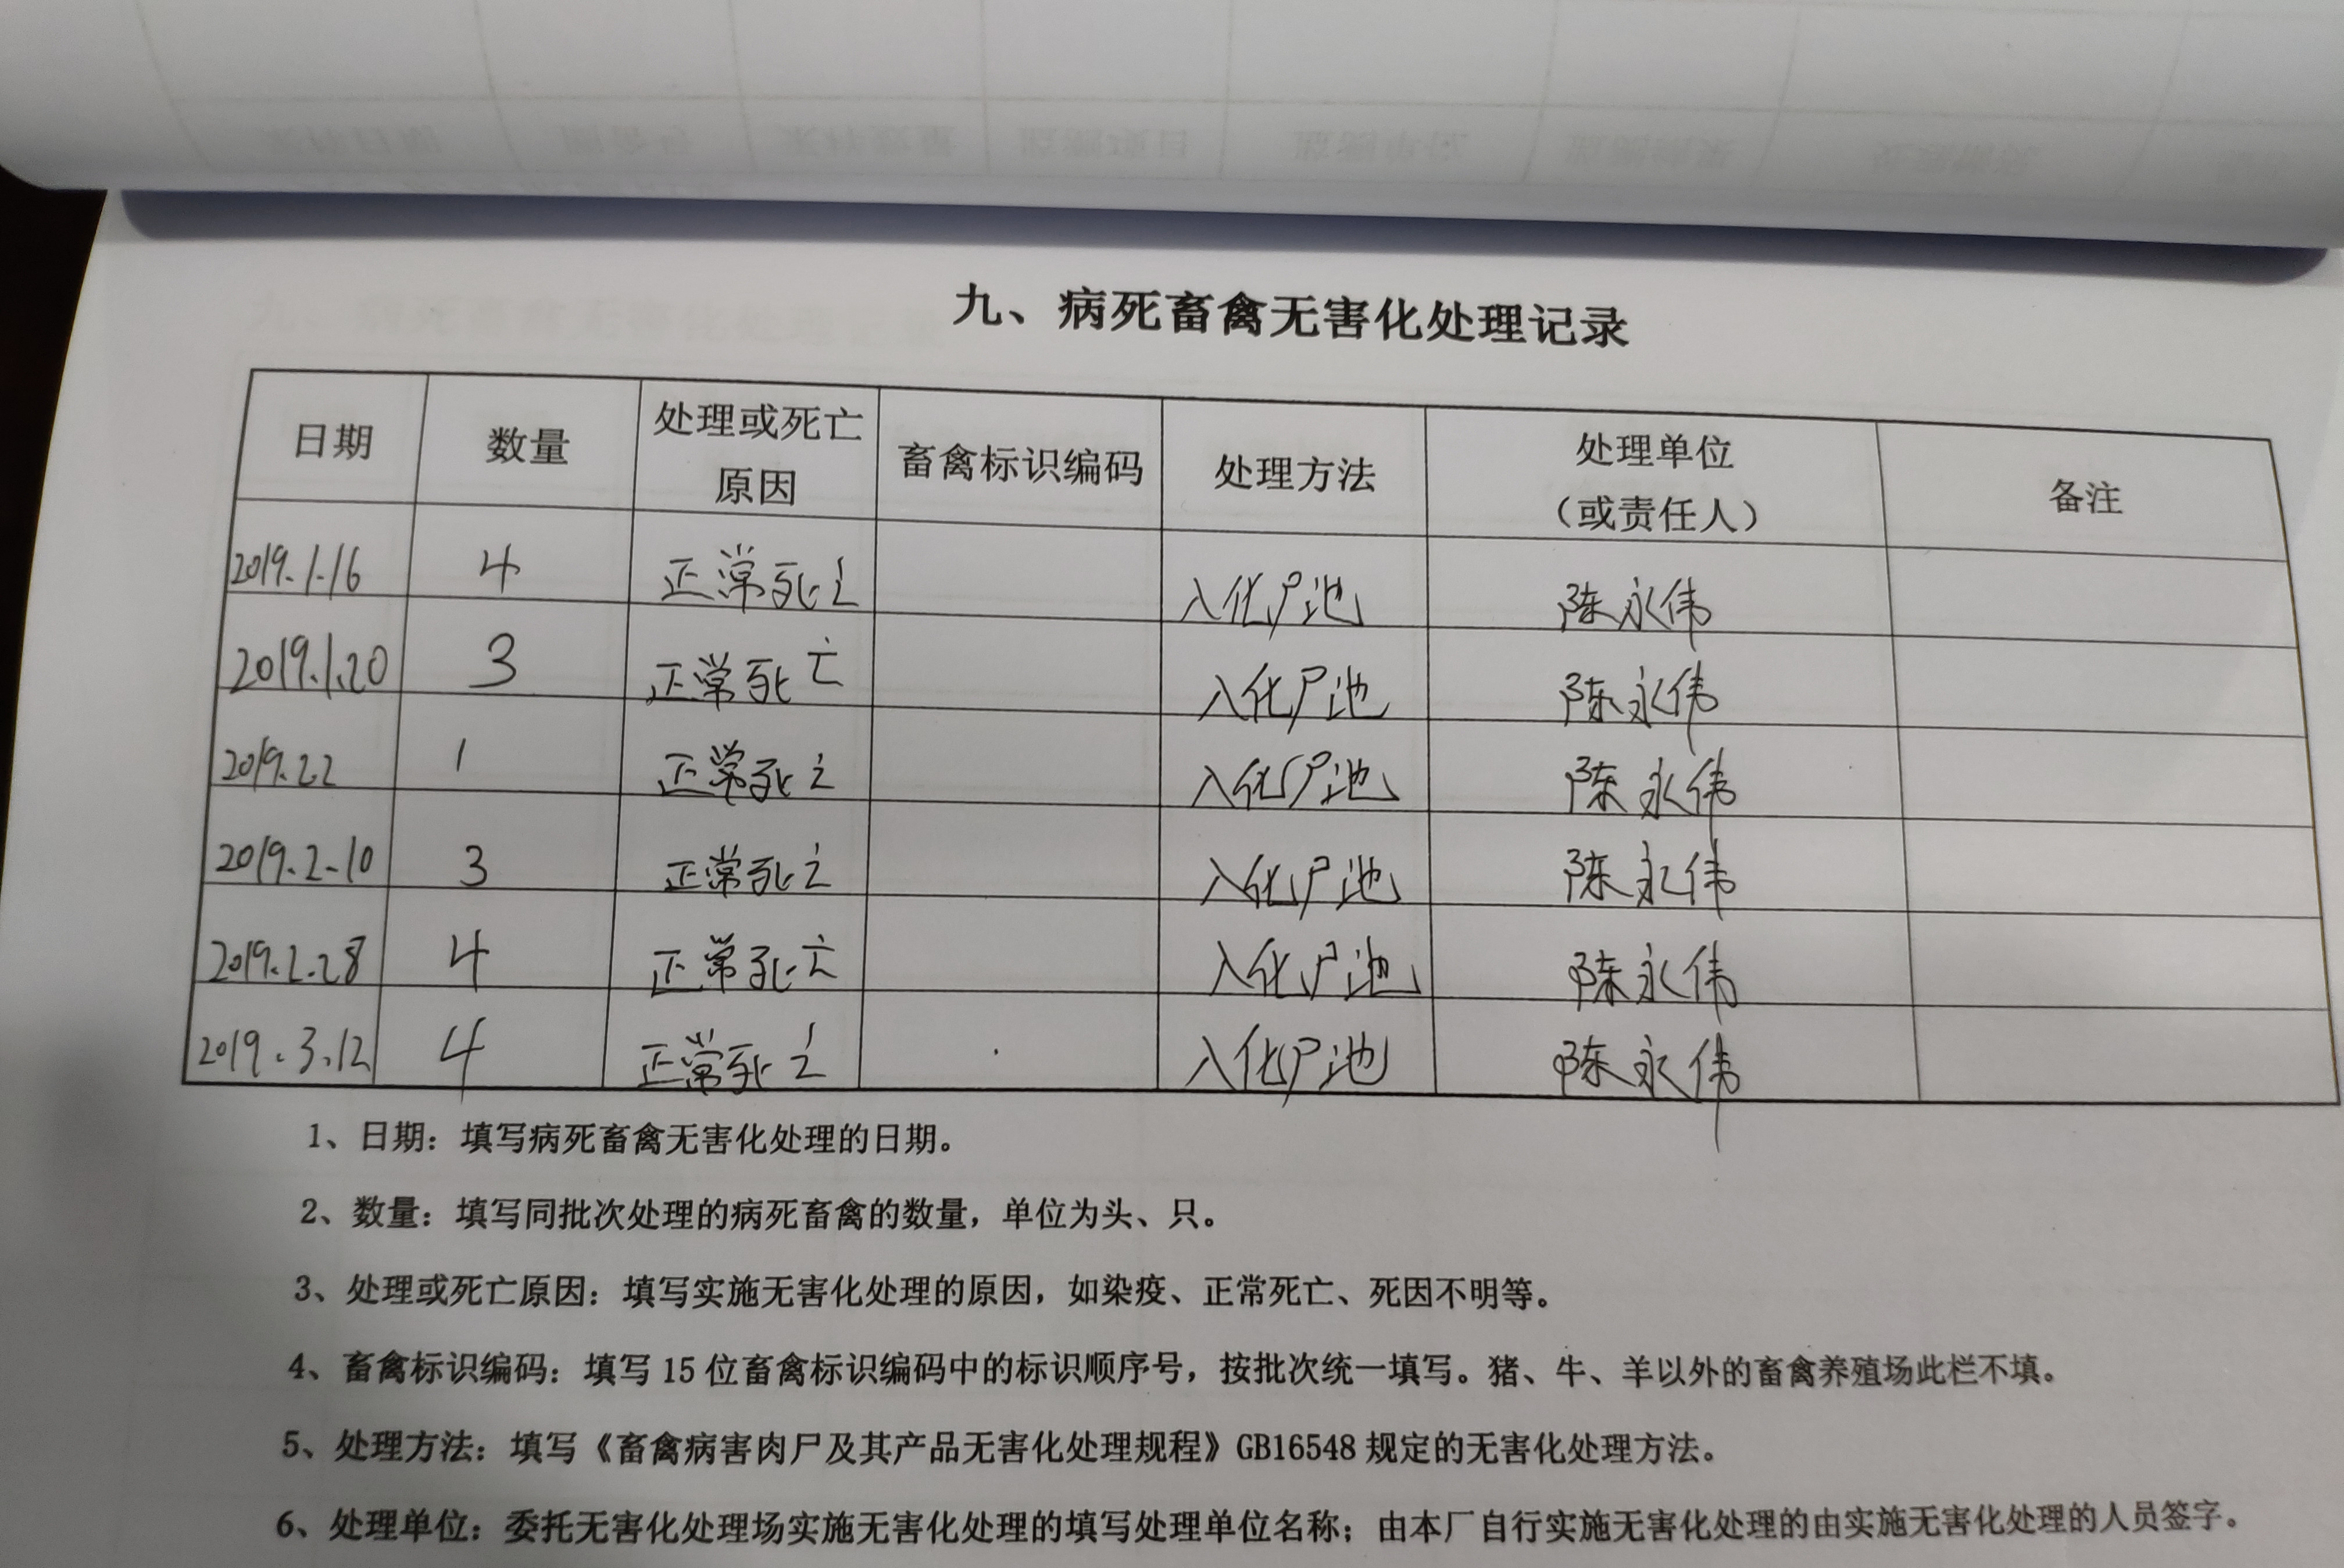 九、病死畜禽无害化处理记录
日期 数量 处理或死亡原因 畜禽标识编码 处理方法 处理单位（或责任人） 备注
2019.1.16 4 正常死亡 入化尸池 陈永伟
2019.1.20 3 正常死亡 入化尸池 陈永伟
2019.2.2 1 正常死亡 入化尸池 陈永伟
2019.2.10 3 正常死亡 入化尸池 陈永伟
2019.2.28 4 正常死亡 入化尸池 陈永伟
2019.3.12 4 正常死亡 入化尸池 陈永伟
1、日期：填写病死畜禽无害化处理的日期。
2、数量：填写同批次处理的病死畜禽的数量，单位为头、只。
3、处理或死亡原因：填写实施无害化处理的原因，如染疫、正常死亡、死因不明等。
4、畜禽标识编码：填写15位畜禽标识编码中的标识顺序号，按批次统一填写。猪、牛、羊以外的畜禽养殖场此栏不填。
5、处理方法：填写《畜禽病害肉尸及其产品无害化处理规程》GB16548规定的无害化处理方法。
6、处理单位：委托无害化处理场实施无害化处理的填写处理单位名称；由本厂自行实施无害化处理的由实施无害化处理的人员签字。